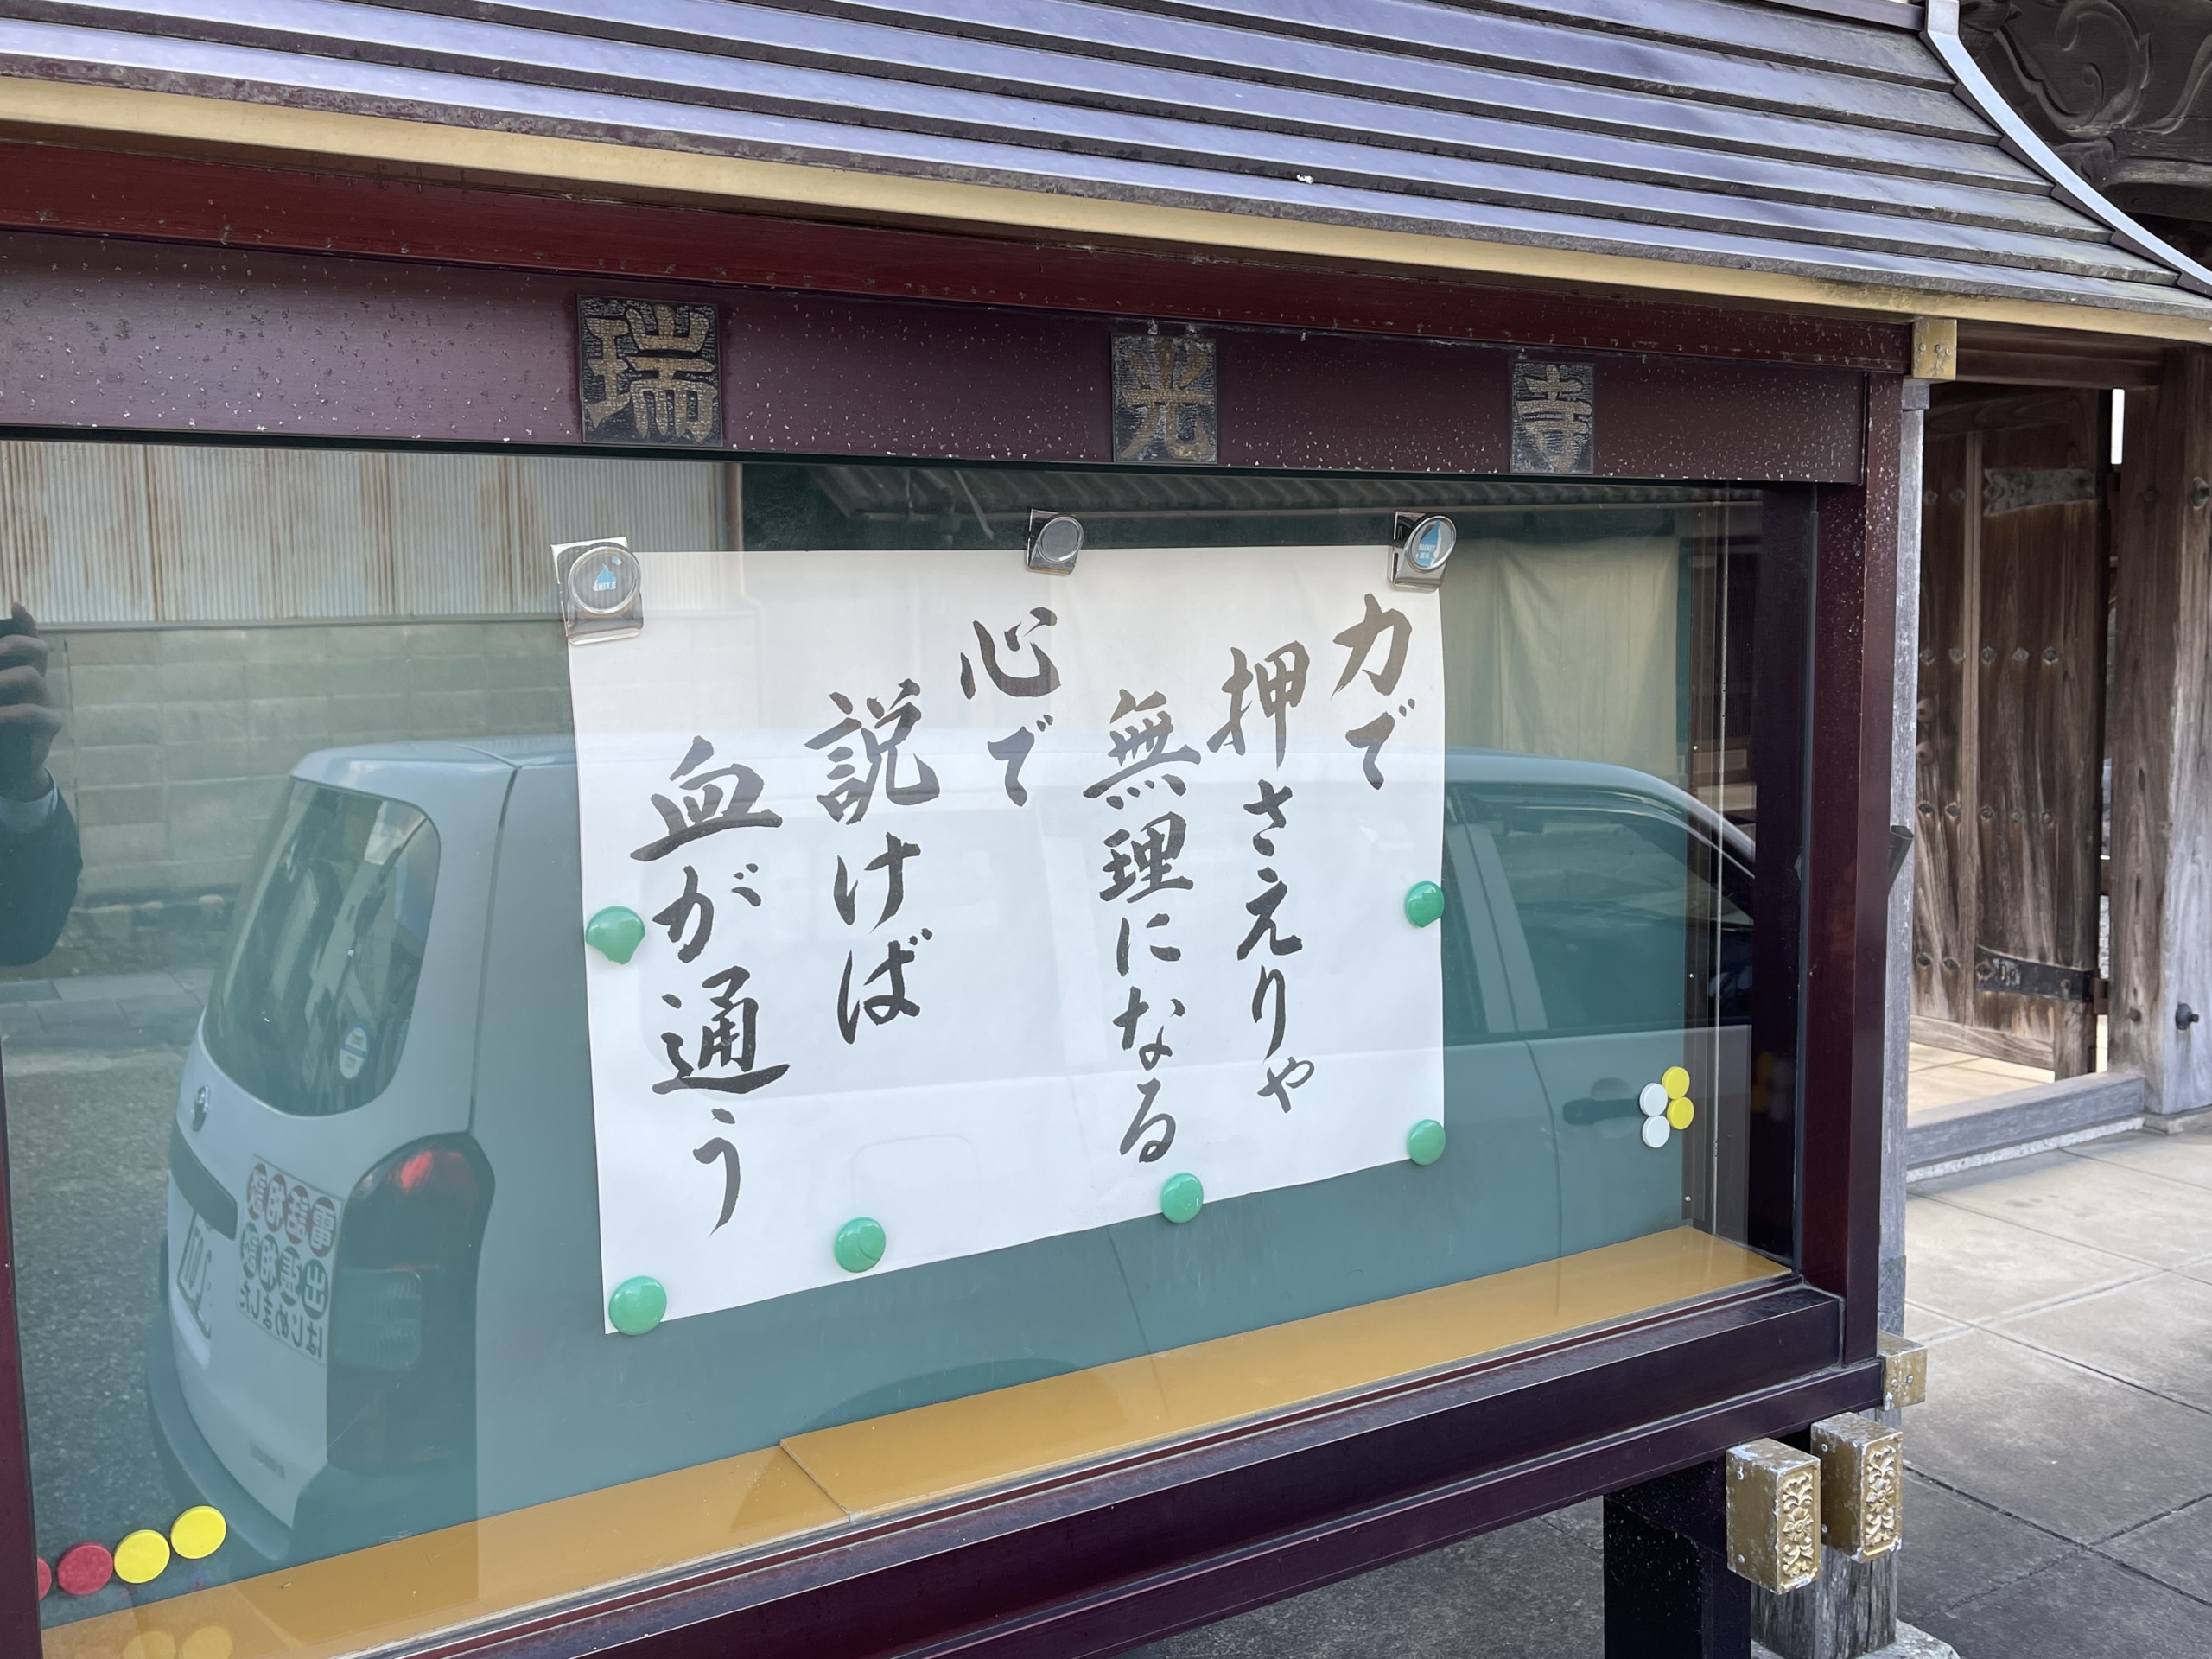 瑞光寺
力で
押さえりゃ
無理になる
心で
説けば
血が通う